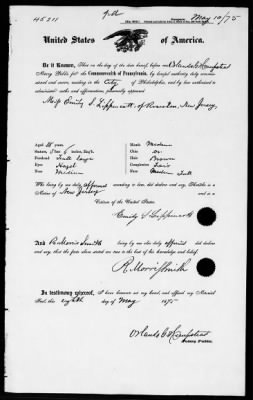 45211
May 10/75
United States of America.
Be it Known, That on the day of the date hereof before me Orlando C. Hempstead
Notary Public for the Commonwealth of Pennsylvania, by lawful authority duly commis-
sioned and sworn, residing in the City of Philadelphia, and by law authorized to
administer oaths and affirmations, personally appeared
Miss Emily S. Lippincott, of New Jersey,
Aged years
Stature, 5 feet 6 inches, Eng.
Forehead Full large
Eyes Hazel
Nose Medium
Mouth Medium
Chin Do
Hair Brown
Complexion Fair
Face Medium Full
Who being by me duly affirmed according to law, did declare and say, That she is a
Native of New Jersey
Citizen of the United States.
Emily S Lippincott
And R. Morris Smith being by me also duly affirmed did declare
and say, that the facts above stated are true to the best of his knowledge and belief.
R. Morris Smith
In testimony whereof, I have hereunto set my hand, and affixed my Notarial
Seal, this eighth day of May 1875
Orlando C. Hempstead
Notary Public.